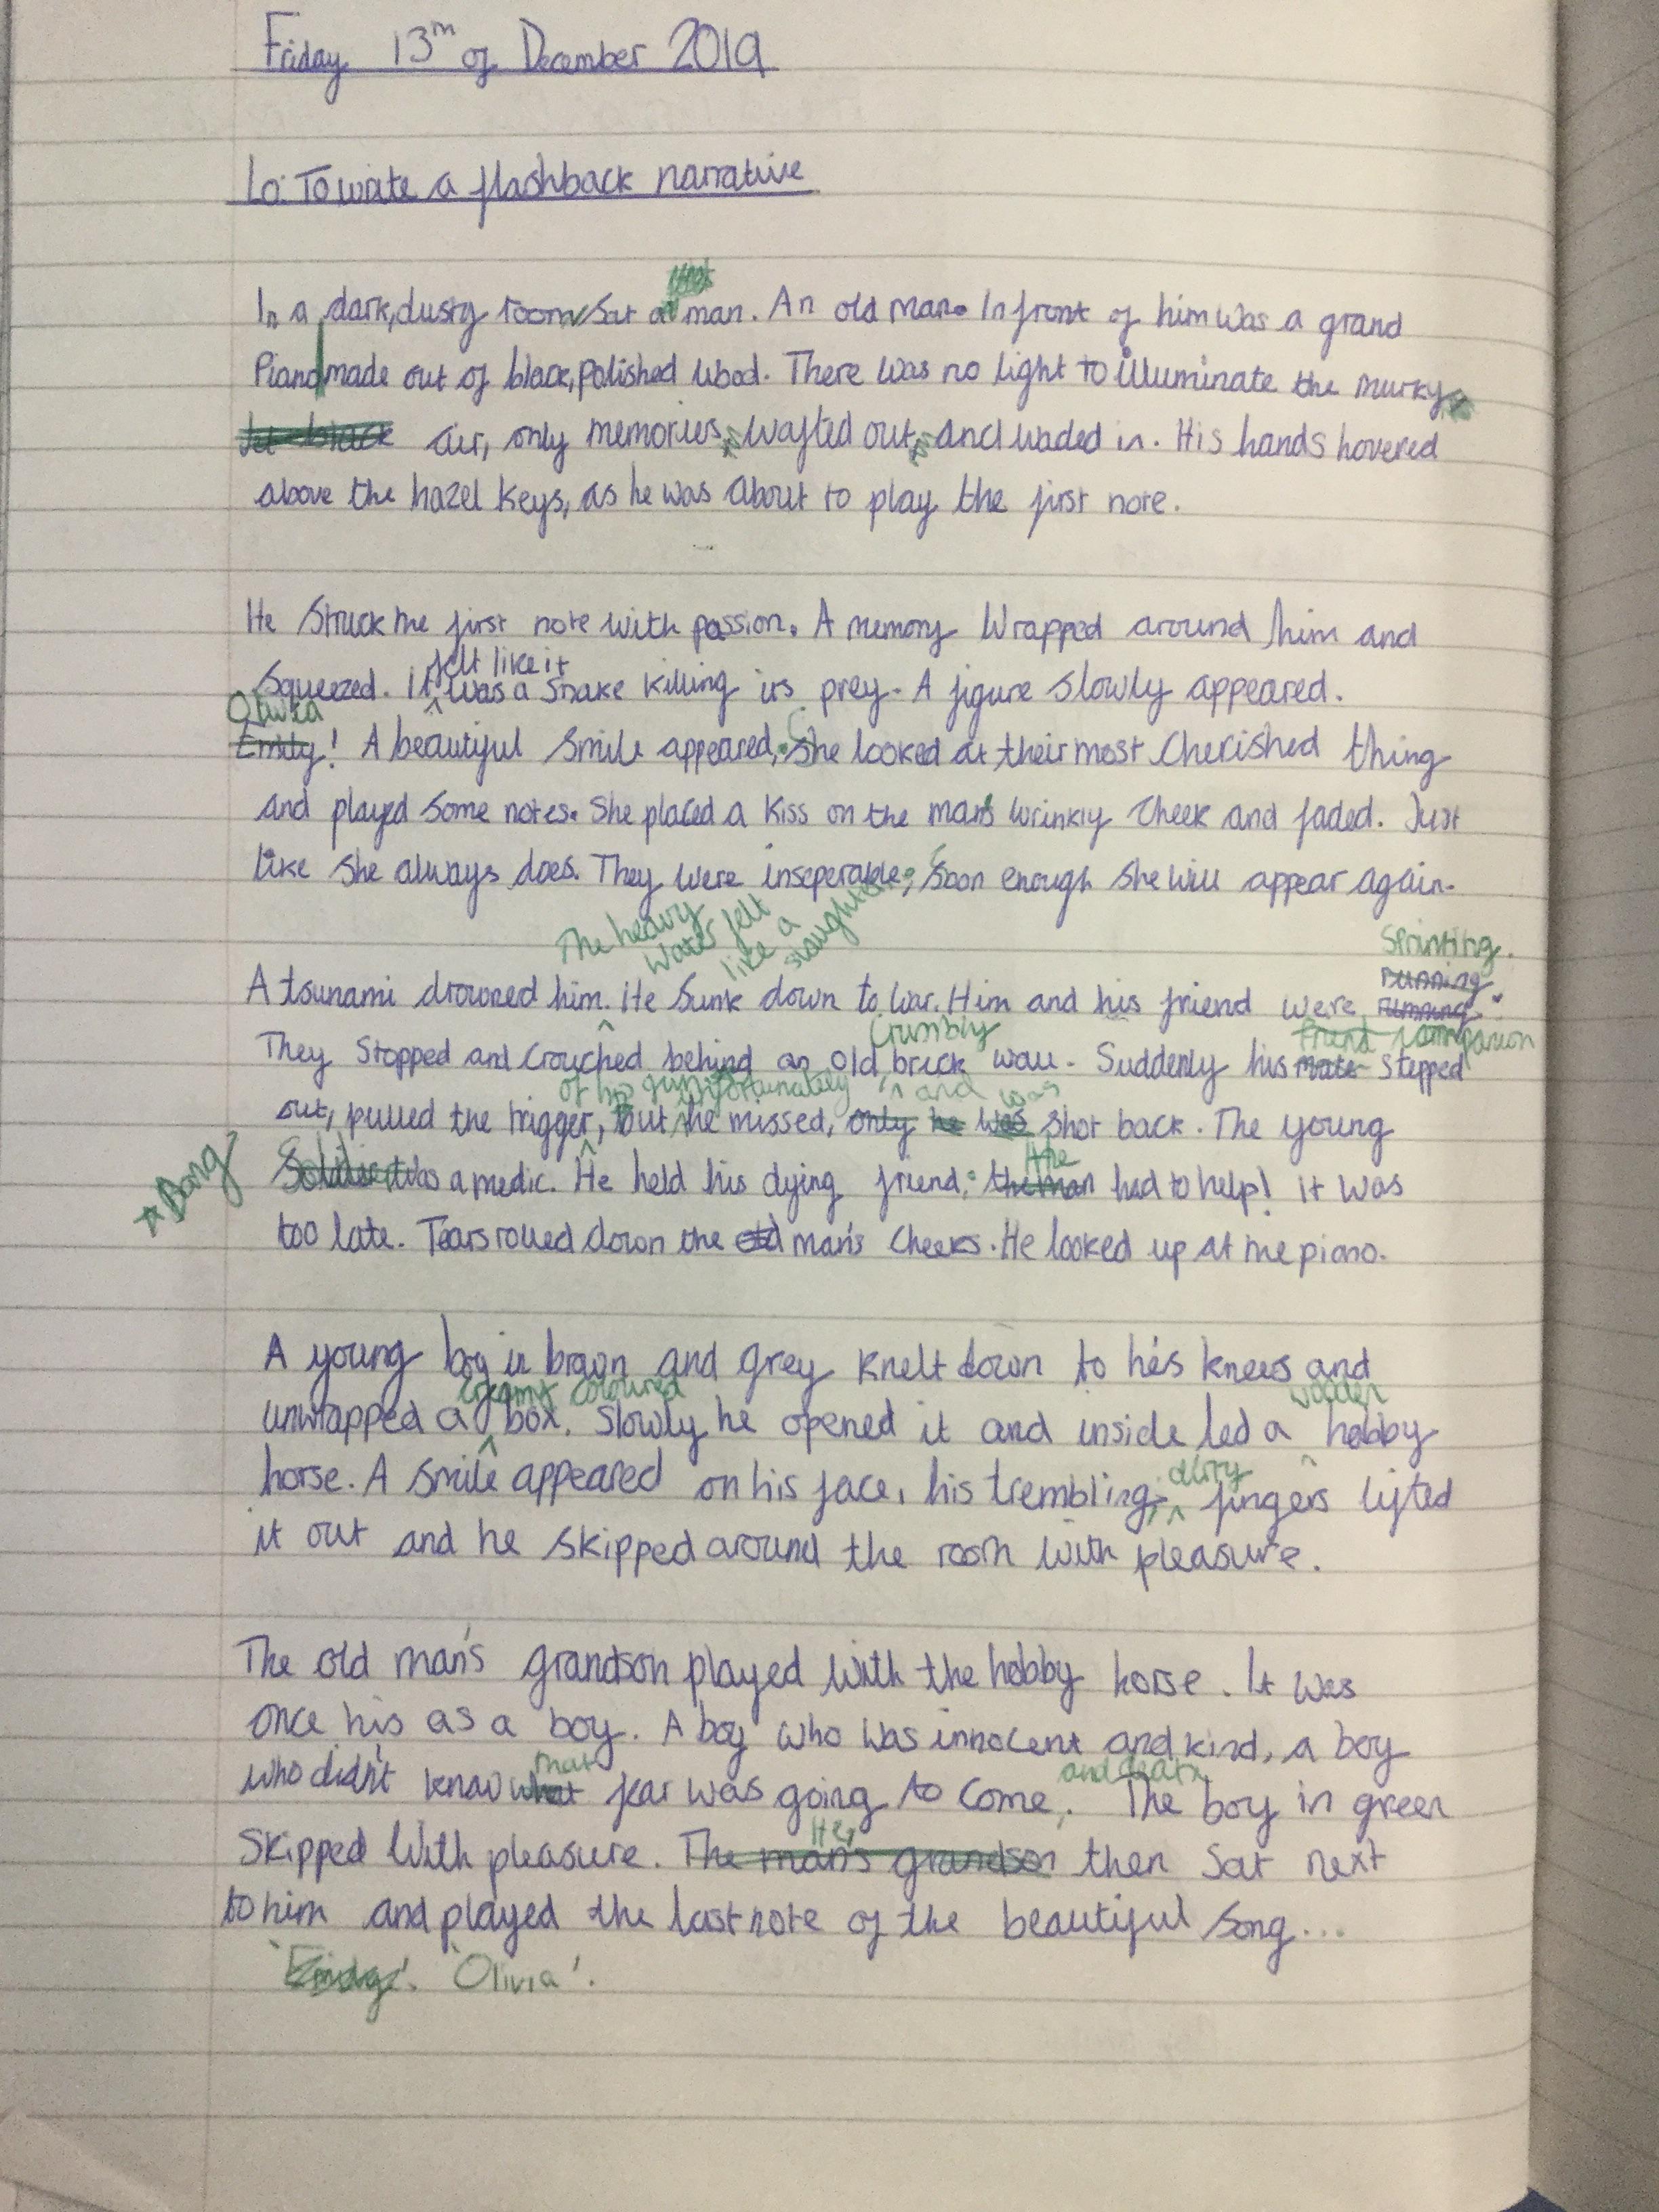 Friday 13th of December 2019
Lo: To write a flashback narrative
In a dark, dusty room sat a man. An old man. Infront of him was a grand
Piano made out of black, polished wood. There was no light to illuminate the murky
Jet black air, only memories, wafted out, and waded in. His hands hovered
above the hazel keys, as he was about to play the first note.
He struck the first note with passion. A memory wrapped around him and
felt like it
squeezed. It was a snake killing its prey. A figure slowly appeared.
Olivia
Emily! A beautiful smile appeared, she looked at their most cherished thing
and played some notes. She placed a kiss on the man's wrinkly cheek and faded. Just
like she always does. They were inseperable; soon enough she will appear again.
The heavy water felt like a
Sprinting.
running
A tsunami drowned him. He sunk down to war. Him and his friend were running.
crumbly friend companion
They stopped and crouched behind an old brick wall. Suddenly his mate stepped
of his gun unfortunately and was
out, pulled the trigger, but he missed, only he was shot back. The young
Bang
the
Soldier was a medic. He held his dying friend; the man had to help! it was
too late. Tears rolled down the old man's cheeks. He looked up at the piano.
A young boy in brown and grey knelt down to his knees and
creamy coloured wooden
unwrapped a box. Slowly he opened it and inside led a hobby
dirty
horse. A smile appeared on his face, his trembling, fingers lifted
it out and he skipped around the room with pleasure.
The old man's grandson played with the hobby horse. It was
once his as a boy. A boy who was innocent and kind, a boy
that and death
who didn't know what fear was going to come. The boy in green
He,
skipped with pleasure. The man's grandson then sat next
to him and played the last note of the beautiful song...
'Olivia'.